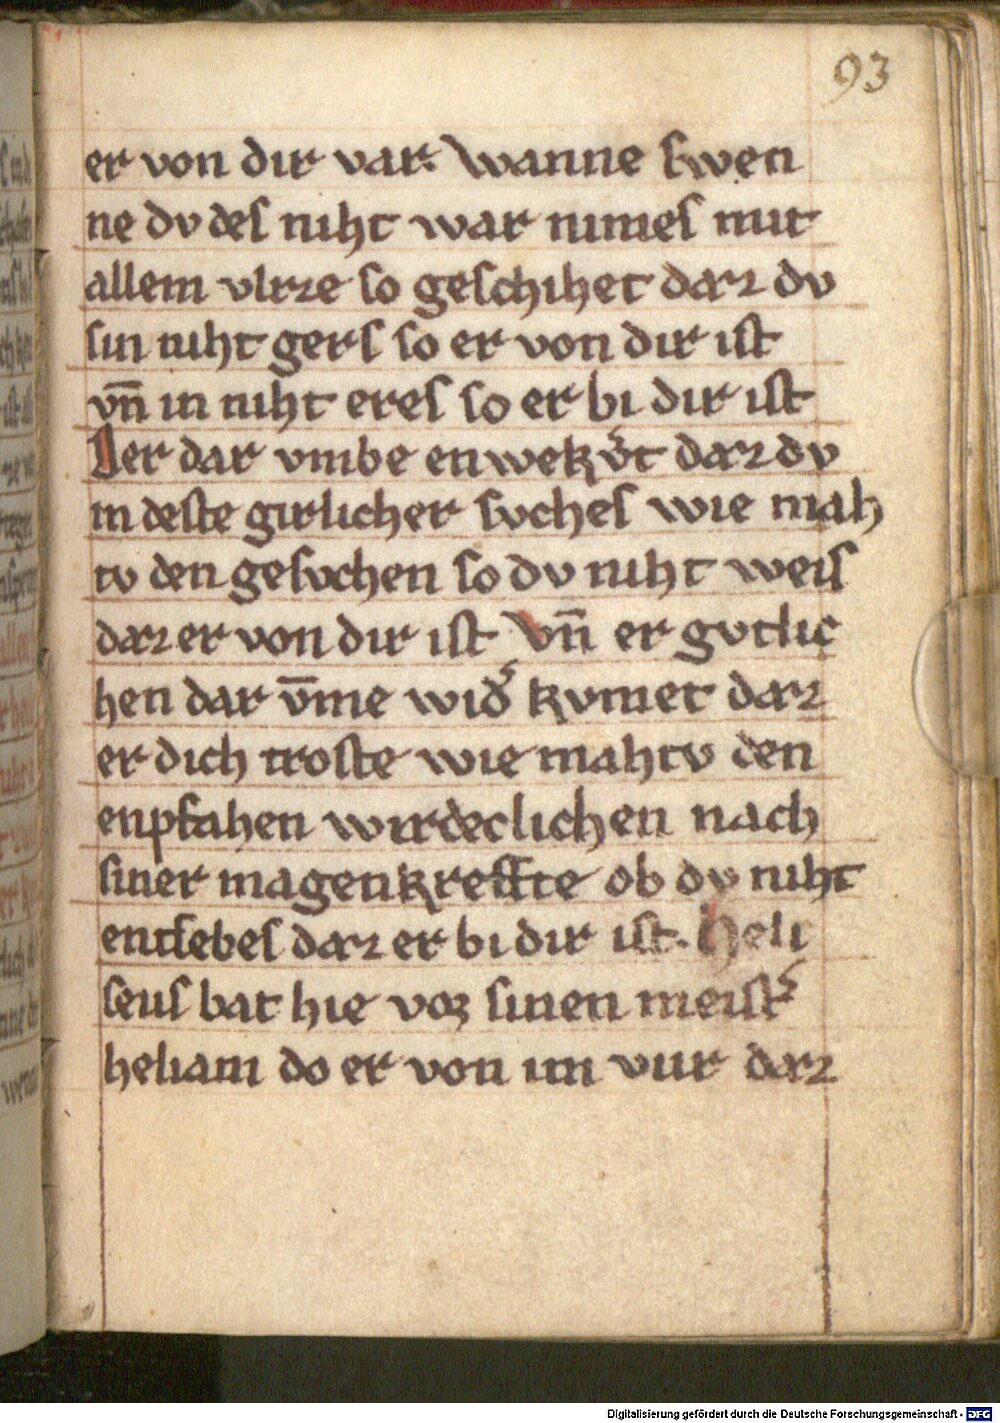 93
er von dir var. Wanne swen
ne dv des niht war nimes mit
allem vlize so geschihet daz dv
sin niht gers so er von dir ist
vn̄ in niht eres so er bi dir ist
Der dar vmbe enwek v͛t daz dv
in deste girlicher svches wie mah
tv den gesvchen so dv niht weis
daz er von dir ist Vn̄ er gvtlic
hen dar v̄me wid͛ kvmet daz
er dich troste wie mahtv den
enpfahen wirdeclichen nach
siner magenkreffte ob dv niht
entsebes daz er bi dir ist. Heli
seus bat hie vor sinen meist͛
heliam do er von im vur daz
Digitalisierung gefördert durch die Deutsche Forschungsgemeinschaft - DFG